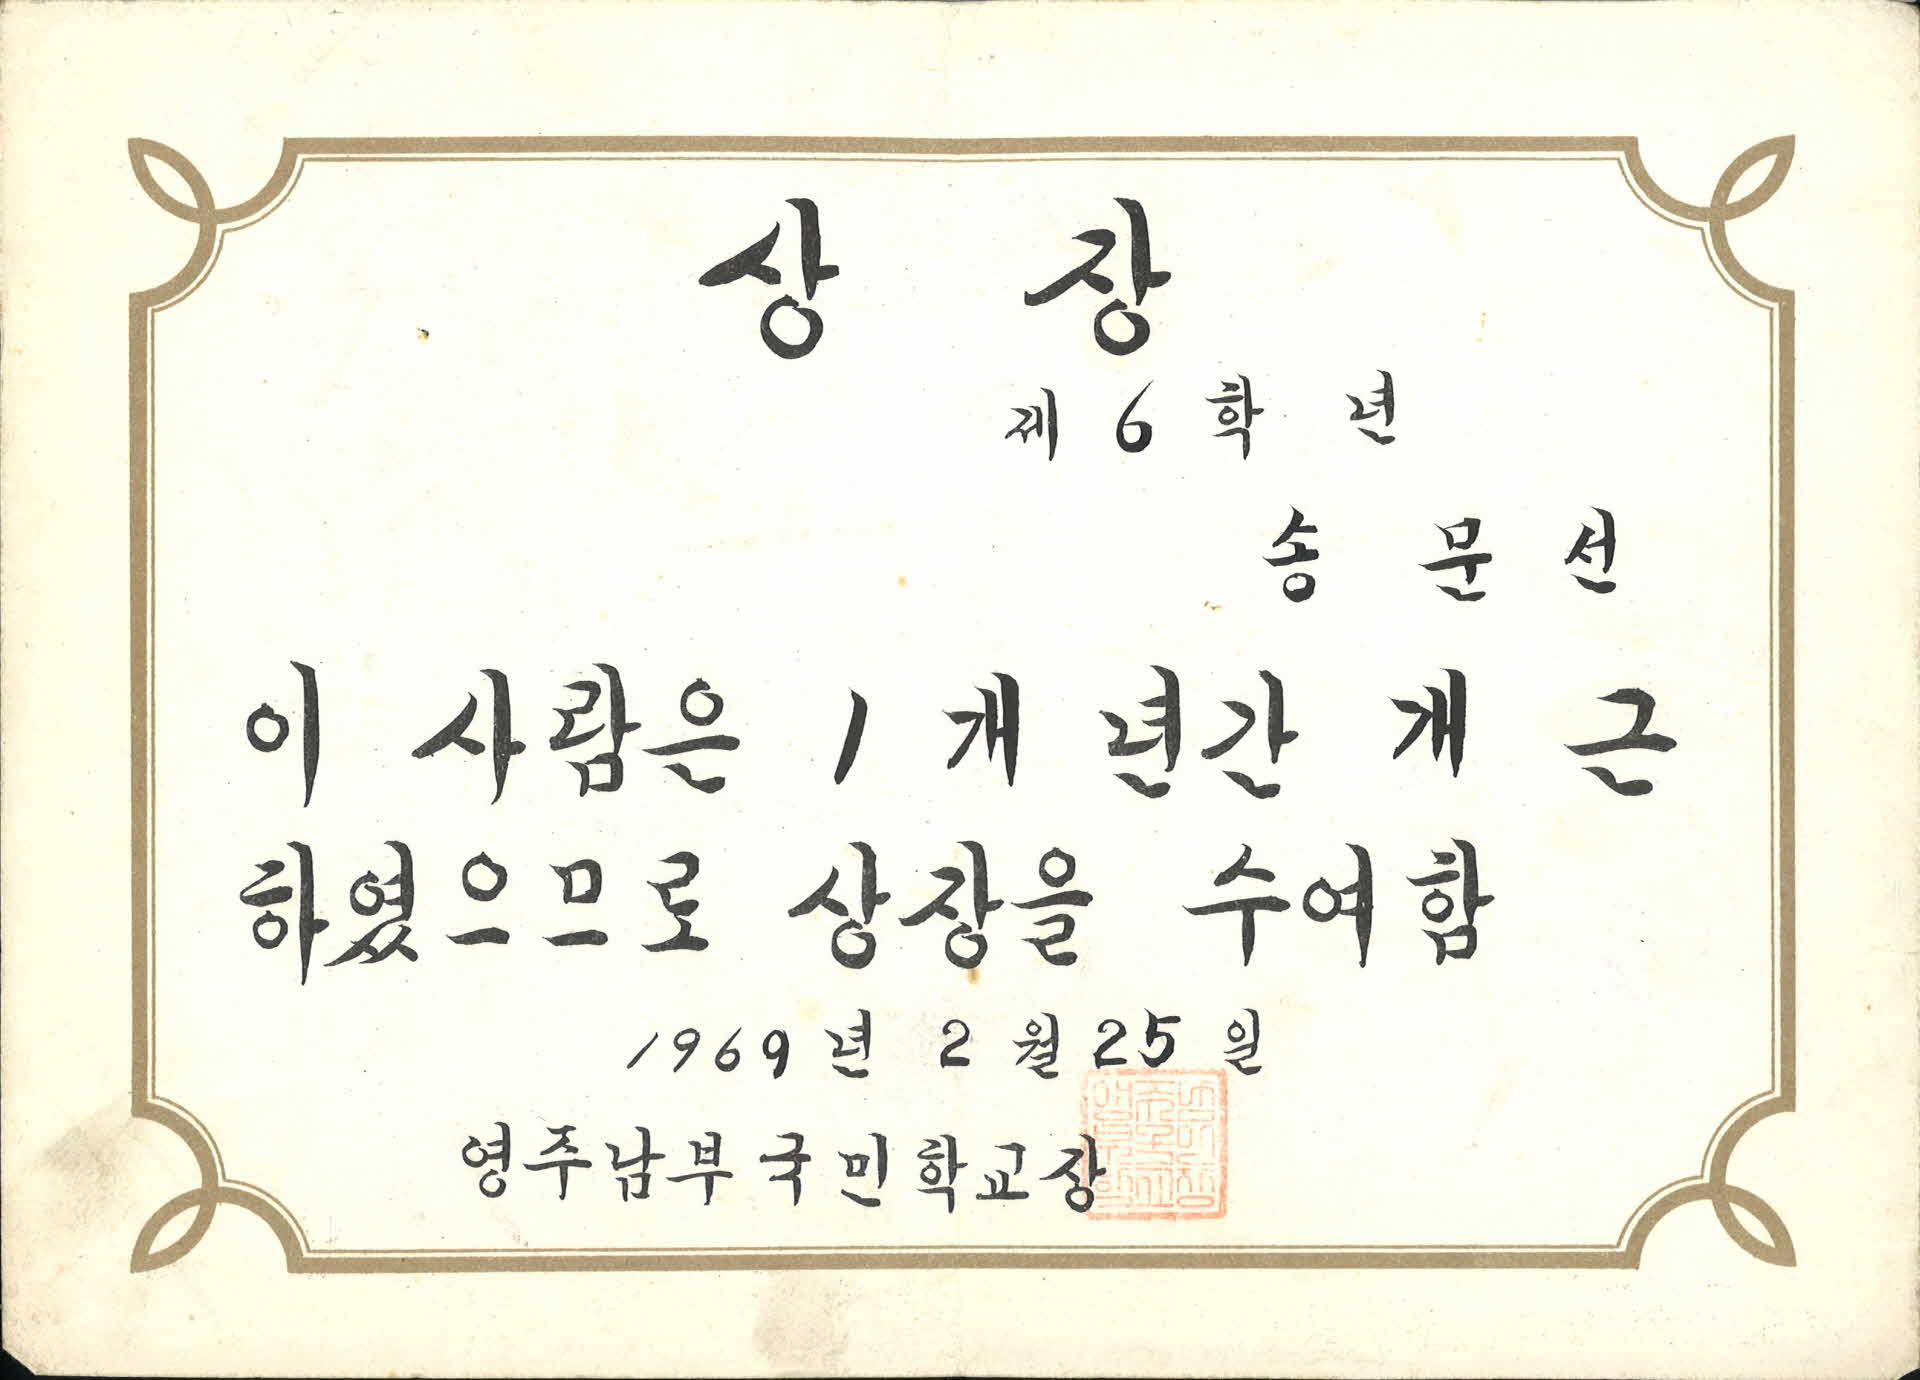 상 장
제 6 학 년
송 문 선
이 사람은 1 개 년간 개 근
하였으므로 상장을 수여함
1969 년 2 월 25 일
영주남부국민학교장